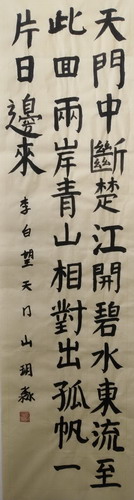 天門中斷楚江開碧水東流至
此回兩岸青山相對出孤帆一
片日邊來
李白望天门山 玥淼